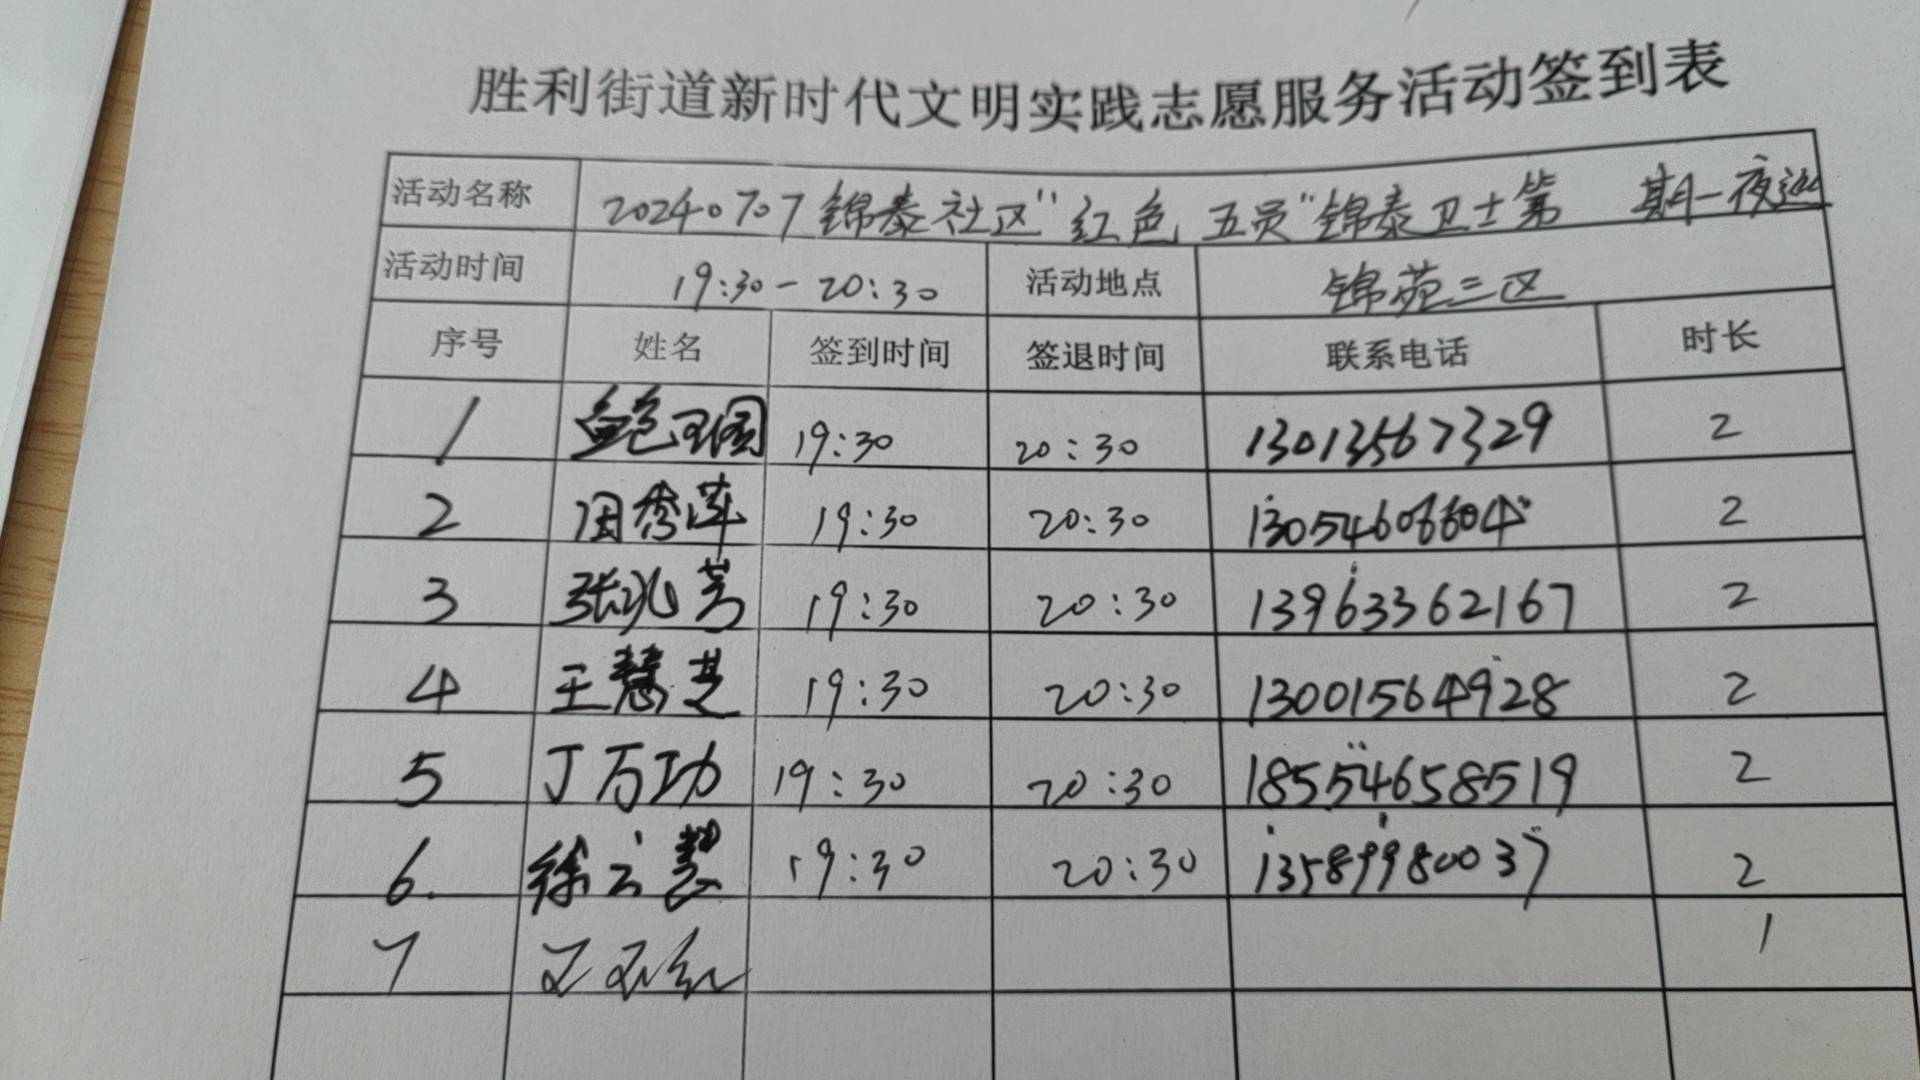 胜利街道新时代文明实践志愿服务活动签到表
活动名称 20240707锦泰社区"红色五员"锦泰卫士第 期—夜巡
活动时间 19:30-20:30 活动地点 锦苑三区
序号 姓名 签到时间 签退时间 联系电话 时长
1 19:30 20:30 13013567329 2
2 周秀萍 19:30 20:30 13054606604 2
3 张兆芳 19:30 20:30 13963362167 2
4 王慧芝 19:30 20:30 13001564928 2
5 丁万功 19:30 20:30 18554658519 2
6. 徐云慧 19:30 20:30 13589980037 2
7 1